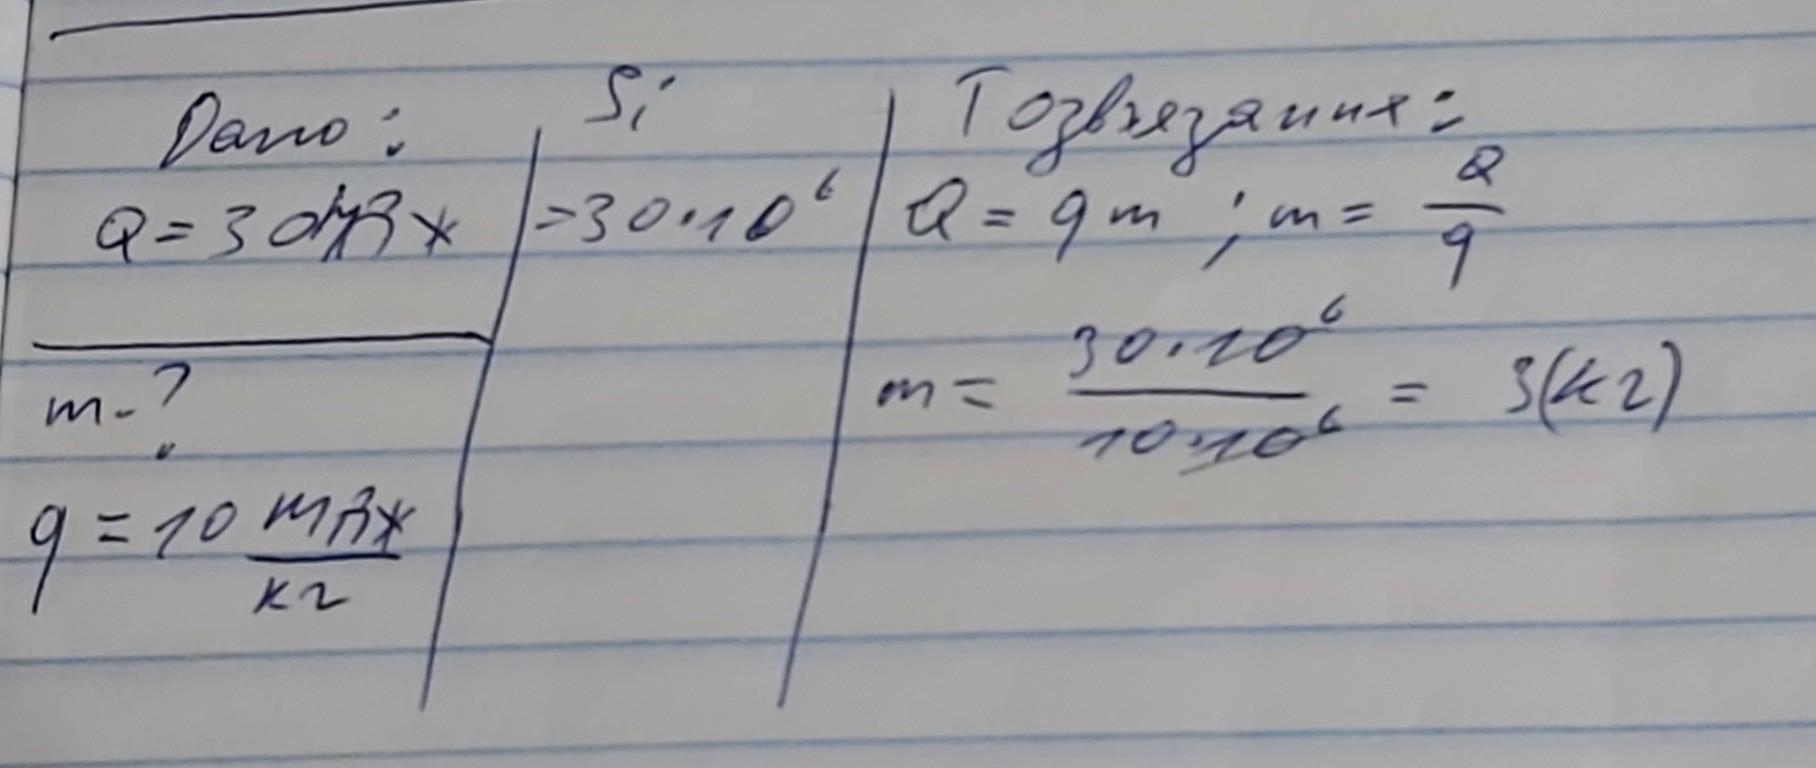 Дано:
Q = 30 мДж
m - ?
q = 10 мДж/кг
Si
= 30 · 10⁶
Розвязання:
Q = qm ; m = Q/q
m = 30·10⁶/10·10⁶ = 3(кг)